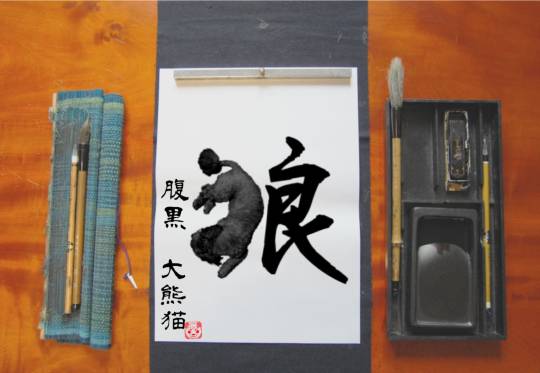 狼
腹黒 大熊猫